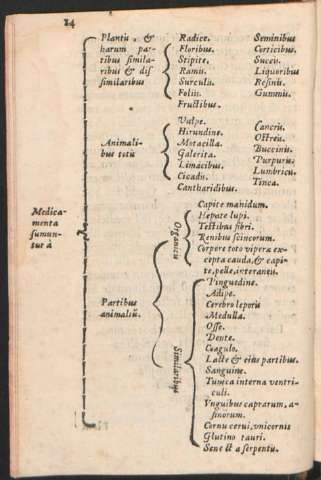 14
Plantis, &
harum par-
tibus simila-
ribus & dis
similaribus
Radice.
Floribus.
Stipite.
Ramis.
Surculis.
Foliis.
Fructibus.
Seminibus
Corticibus.
Succis.
Liquoribus
Resinis.
Gummis.
Animali-
bus totis
Vulpe.
Hirundine.
Motacilla.
Galerita.
Limacibus.
Cicadis.
Cantharidibus.
Cancris.
Ostreis.
Buccinis.
Purpuris.
Lumbricis.
Tinca.
Medica-
menta
sumun-
tur à
Partibus
animaliū.
Organicis
Capite manidum.
Hepate lupi.
Testibus fibri.
Renibus scincorum.
Corpore toto viperæ ex-
cepta cauda, & capi-
te, pelle, interaneis.
Similaribus
Pinguedine.
Adipe.
Cerebro leporis
Medulla.
Osse.
Dente.
Coagulo.
Lacte & eius partibus.
Sanguine.
Tunica interna ventri-
culi.
Vnguibus caprarum, a-
sinorum.
Cornu cerui, vnicornis
Glutino tauri.
Senecta serpentis.